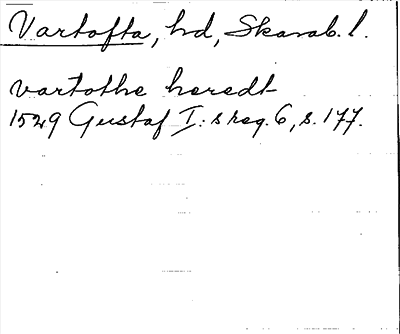 Vartofta, hd, Skarab. l.
vartothe heredt
1529 Gustaf I:s reg. 6, s. 177.